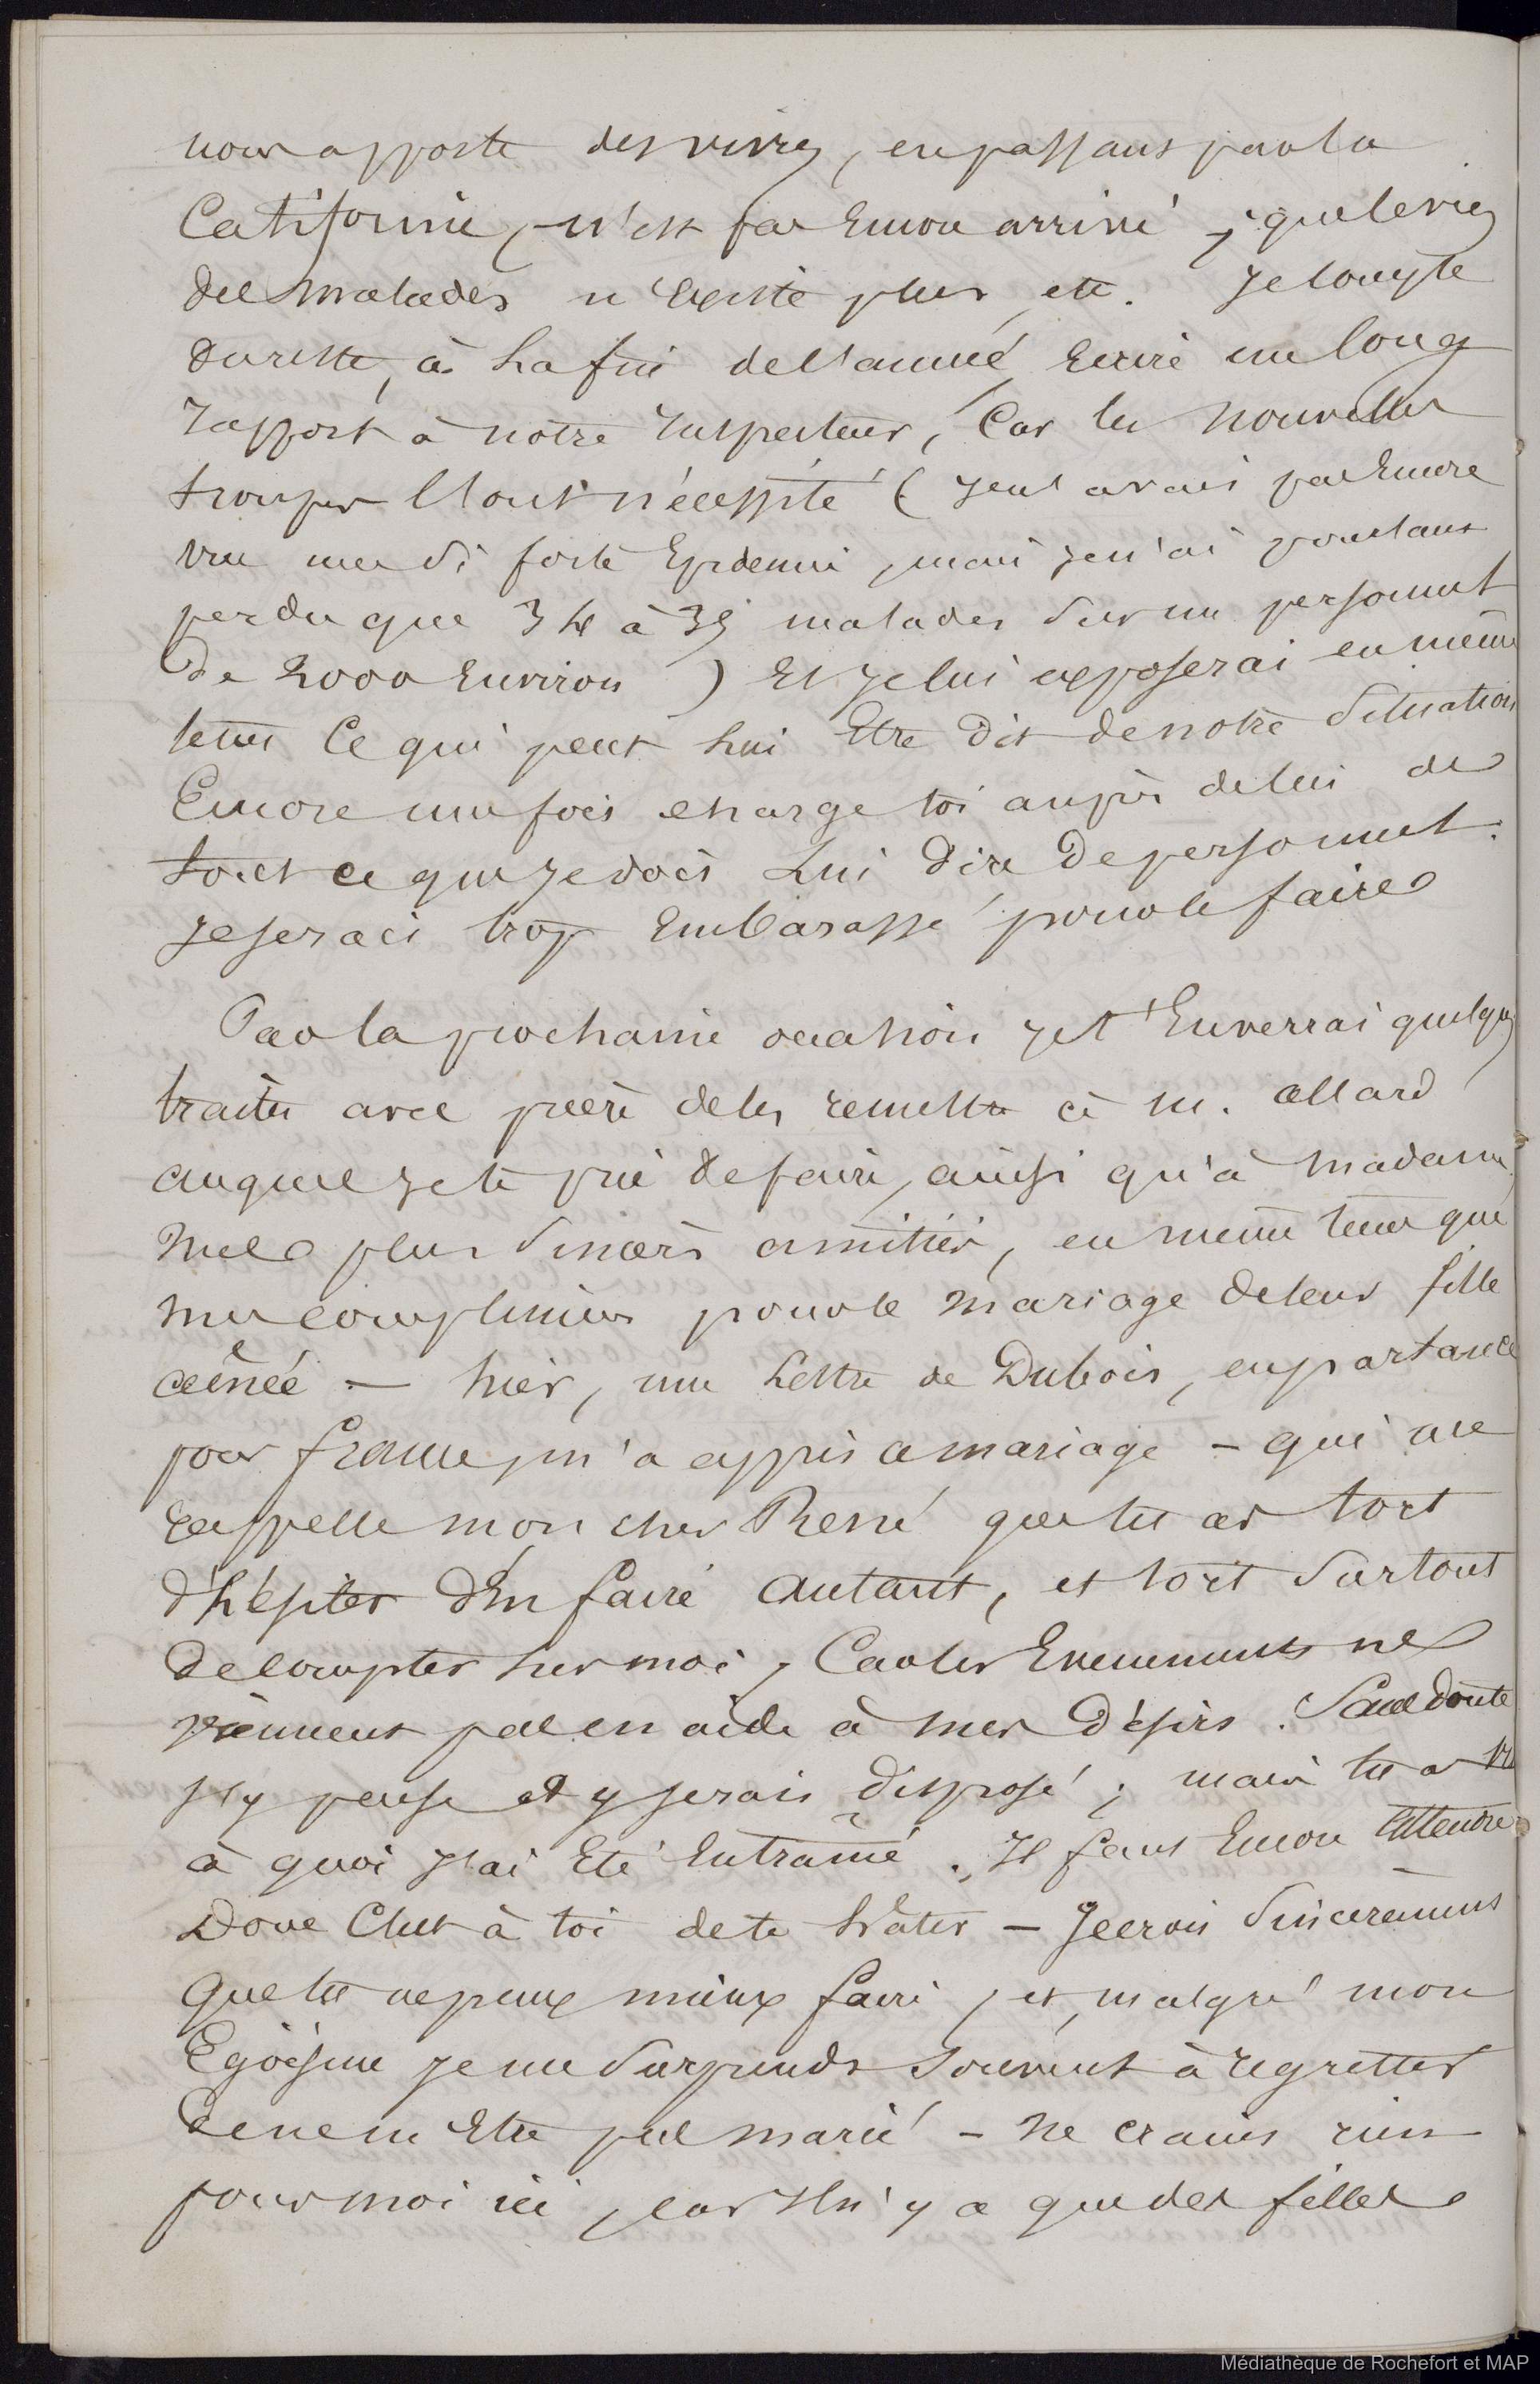 nous apporte des vivres, en passant par la
Californie, n'est pas Encore arrivé ; que le vin
des malades n'Existe plus, etc. Je compte
du reste, à la fin de l'année, Ecrire un long
rapport à notre Inspecteur, Car les nouvelles
troupes l'ont nécessité ( Je n'avais pas Encore
vu une si forte Epidemie, mais je n'ai pourtant
perdu que 34 à 35 malades sur un personnel
de 2000 Environ ) Et je lui exposerai en même
tems Ce qui peut lui Etre Dit de notre Situation
Encore une fois charge toi auprès de lui de
tout ce que je dois Lui Dire De personnel.
Je serai trop Embarassé pour le faire
Par la prochaine occasion je t'Enverrai quelques
traites avec prière de les remettre à M. Allard
auquel je te prie De faire, ainsi qu'à Madame,
Mes plus Sincères amitiés, en même tems que
mes complimens pour le mariage De leur fille
aînée — hier, une Lettre de Dubois, en partance
pour france, m'a appris ce mariage — qui me
rappelle mon cher René que tu as tort
d'hésiter d'En faire Autant, et tort Surtout
De compter sur moi, Car les Evenements ne
viennent pas en aide à mes Désirs. Sans doute
j'y pense et y serais disposé ; mais tu as vu
à quoi j'ai Eté Entrainé. Il faut Encore Attendre
Donc C'est à toi de te hâter — Je crois Sincèrement
Que tu ne peux mieux faire, et, malgré mon
Egoïsme je me Surprends Souvent à regretter
De ne m'Etre pas marié — Ne crains rien
pour moi ici, car Il n'y a que des filles
Médiathèque de Rochefort et MAP